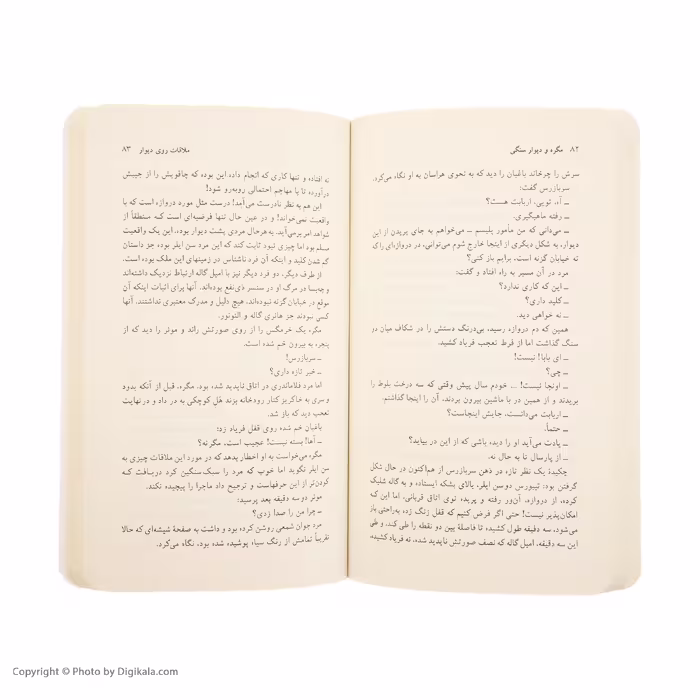 ۸۲ مگره و دیوار سنگی
سرش را چرخاند باغبان را دید که به نحوی هراسان به او نگاه می‌کرد.
سربازرس گفت:
ــ آه، تویی، اربابت هست؟
ــ رفته ماهیگیری.
ــ می‌دانی که من مأمور پلیسم ــ می‌خواهم به جای پریدن از این
دیوار، به شکل دیگری از اینجا خارج شوم می‌توانی، در دروازه‌ای را که
ته خیابان گزنه است، برایم باز کنی؟
مرد در آن مسیر به راه افتاد و گفت:
ــ این که کاری ندارد؟
ــ کلید داری؟
ــ نه خواهی دید.
همین که دم دروازه رسید، بی‌درنگ دستش را در شکاف میان دو
سنگ گذاشت اما از فرط تعجب فریاد کشید.
ــ ای بابا! نیست!
ــ چی؟
ــ اونجا نیست! ... خودم سال پیش وقتی که سه درخت بلوط را
بریدند و از همین در با ماشین بیرون بردند، آن را اینجا گذاشتم.
ــ اربابت می‌دانست، جایش اینجاست؟
ــ حتماً.
ــ یادت می‌آید او را دیده باشی که از این در بیاید؟
ــ از پارسال تا به حال نه.
چکیدهٔ یک نظر تازه در ذهن سربازرس از هم‌اکنون در حال شکل
گرفتن بود: تیبورس دوسن ایلر، بالای بشکه ایستاده و به گاله شلیک
کرده، از دروازه، آن‌ور رفته و پریده توی اتاق قربانی، اما این که
امکان‌پذیر نیست! حتی اگر فرض کنیم که قفل زنگ زده به‌راحتی باز
می‌شود، سه دقیقه طول کشیده تا فاصلهٔ بین دو نقطه را طی کند، و طی
این سه دقیقه، امیل گاله که نصف صورتش ناپدید شده، نه فریاد کشیده
ملاقات روی دیوار ۸۳
نه افتاده و تنها کاری که انجام داده این بوده که چاقویش را از جیبش
درآورده تا با مهاجم احتمالی روبه‌رو شود!
این هم به نظر نادرست می‌آمد! درست مثل مورد دروازه است که با
واقعیت نمی‌خواند! و در عین حال تنها فرضیه‌ای است که منطقاً از
شواهد امر برمی‌آید. به‌هرحال مردی پشت دیوار بود، این یک واقعیت
مسلم بود اما چیزی نبود ثابت کند که این مرد سن ایلر بوده جز داستان
گم شدن کلید و اینکه آن فرد ناشناس در زمینهای این ملک بوده است.
از طرف دیگر، دو فرد دیگر نیز با امیل گاله ارتباط نزدیک داشته‌اند
و چه‌بسا در مرگ او در سنسر ذی‌نفع بوده‌اند. آنها برای اثبات اینکه آن
موقع در خیابان گزنه نبوده‌اند، هیچ دلیل و مدرک معتبری نداشتند. آنها
کسی نبودند جز هانری گاله و النونور.
مگره یک خرمگس را از روی صورتش راند و موثر را دید که از
پنجره به بیرون خم شده است.
ــ سربازرس!
ــ خبر تازه داری؟
اما مرد فلاماندری در اتاق ناپدید شده بود. مگره، قبل از آنکه بدود
و سری به خاکریز کنار رودخانه بزند هُلِ کوچکی به در داد و در نهایت
تعجب دید که باز شد.
باغبان خم شده روی قفل فریاد زد:
ــ آها! بسته نیست! عجیب است، مگر نه؟
مگره می‌خواست به او اخطار بدهد که در مورد این ملاقات چیزی به
سن ایلر نگوید اما خوب که مرد را سبک سنگین کرد دریافت که
کودن‌تر از این حرفهاست و ترجیح داد ماجرا را پیچیده نکند.
موثر دو سه دقیقه بعد پرسید:
ــ چرا من را صدا زدی؟
مرد جوان شمعی روشن کرده بود و داشت به صفحهٔ شیشه‌ای که حالا
تقریباً تمامش از رنگ سیاه پوشیده شده بود، نگاه می‌کرد.
Copyright © Photo by Digikala.com